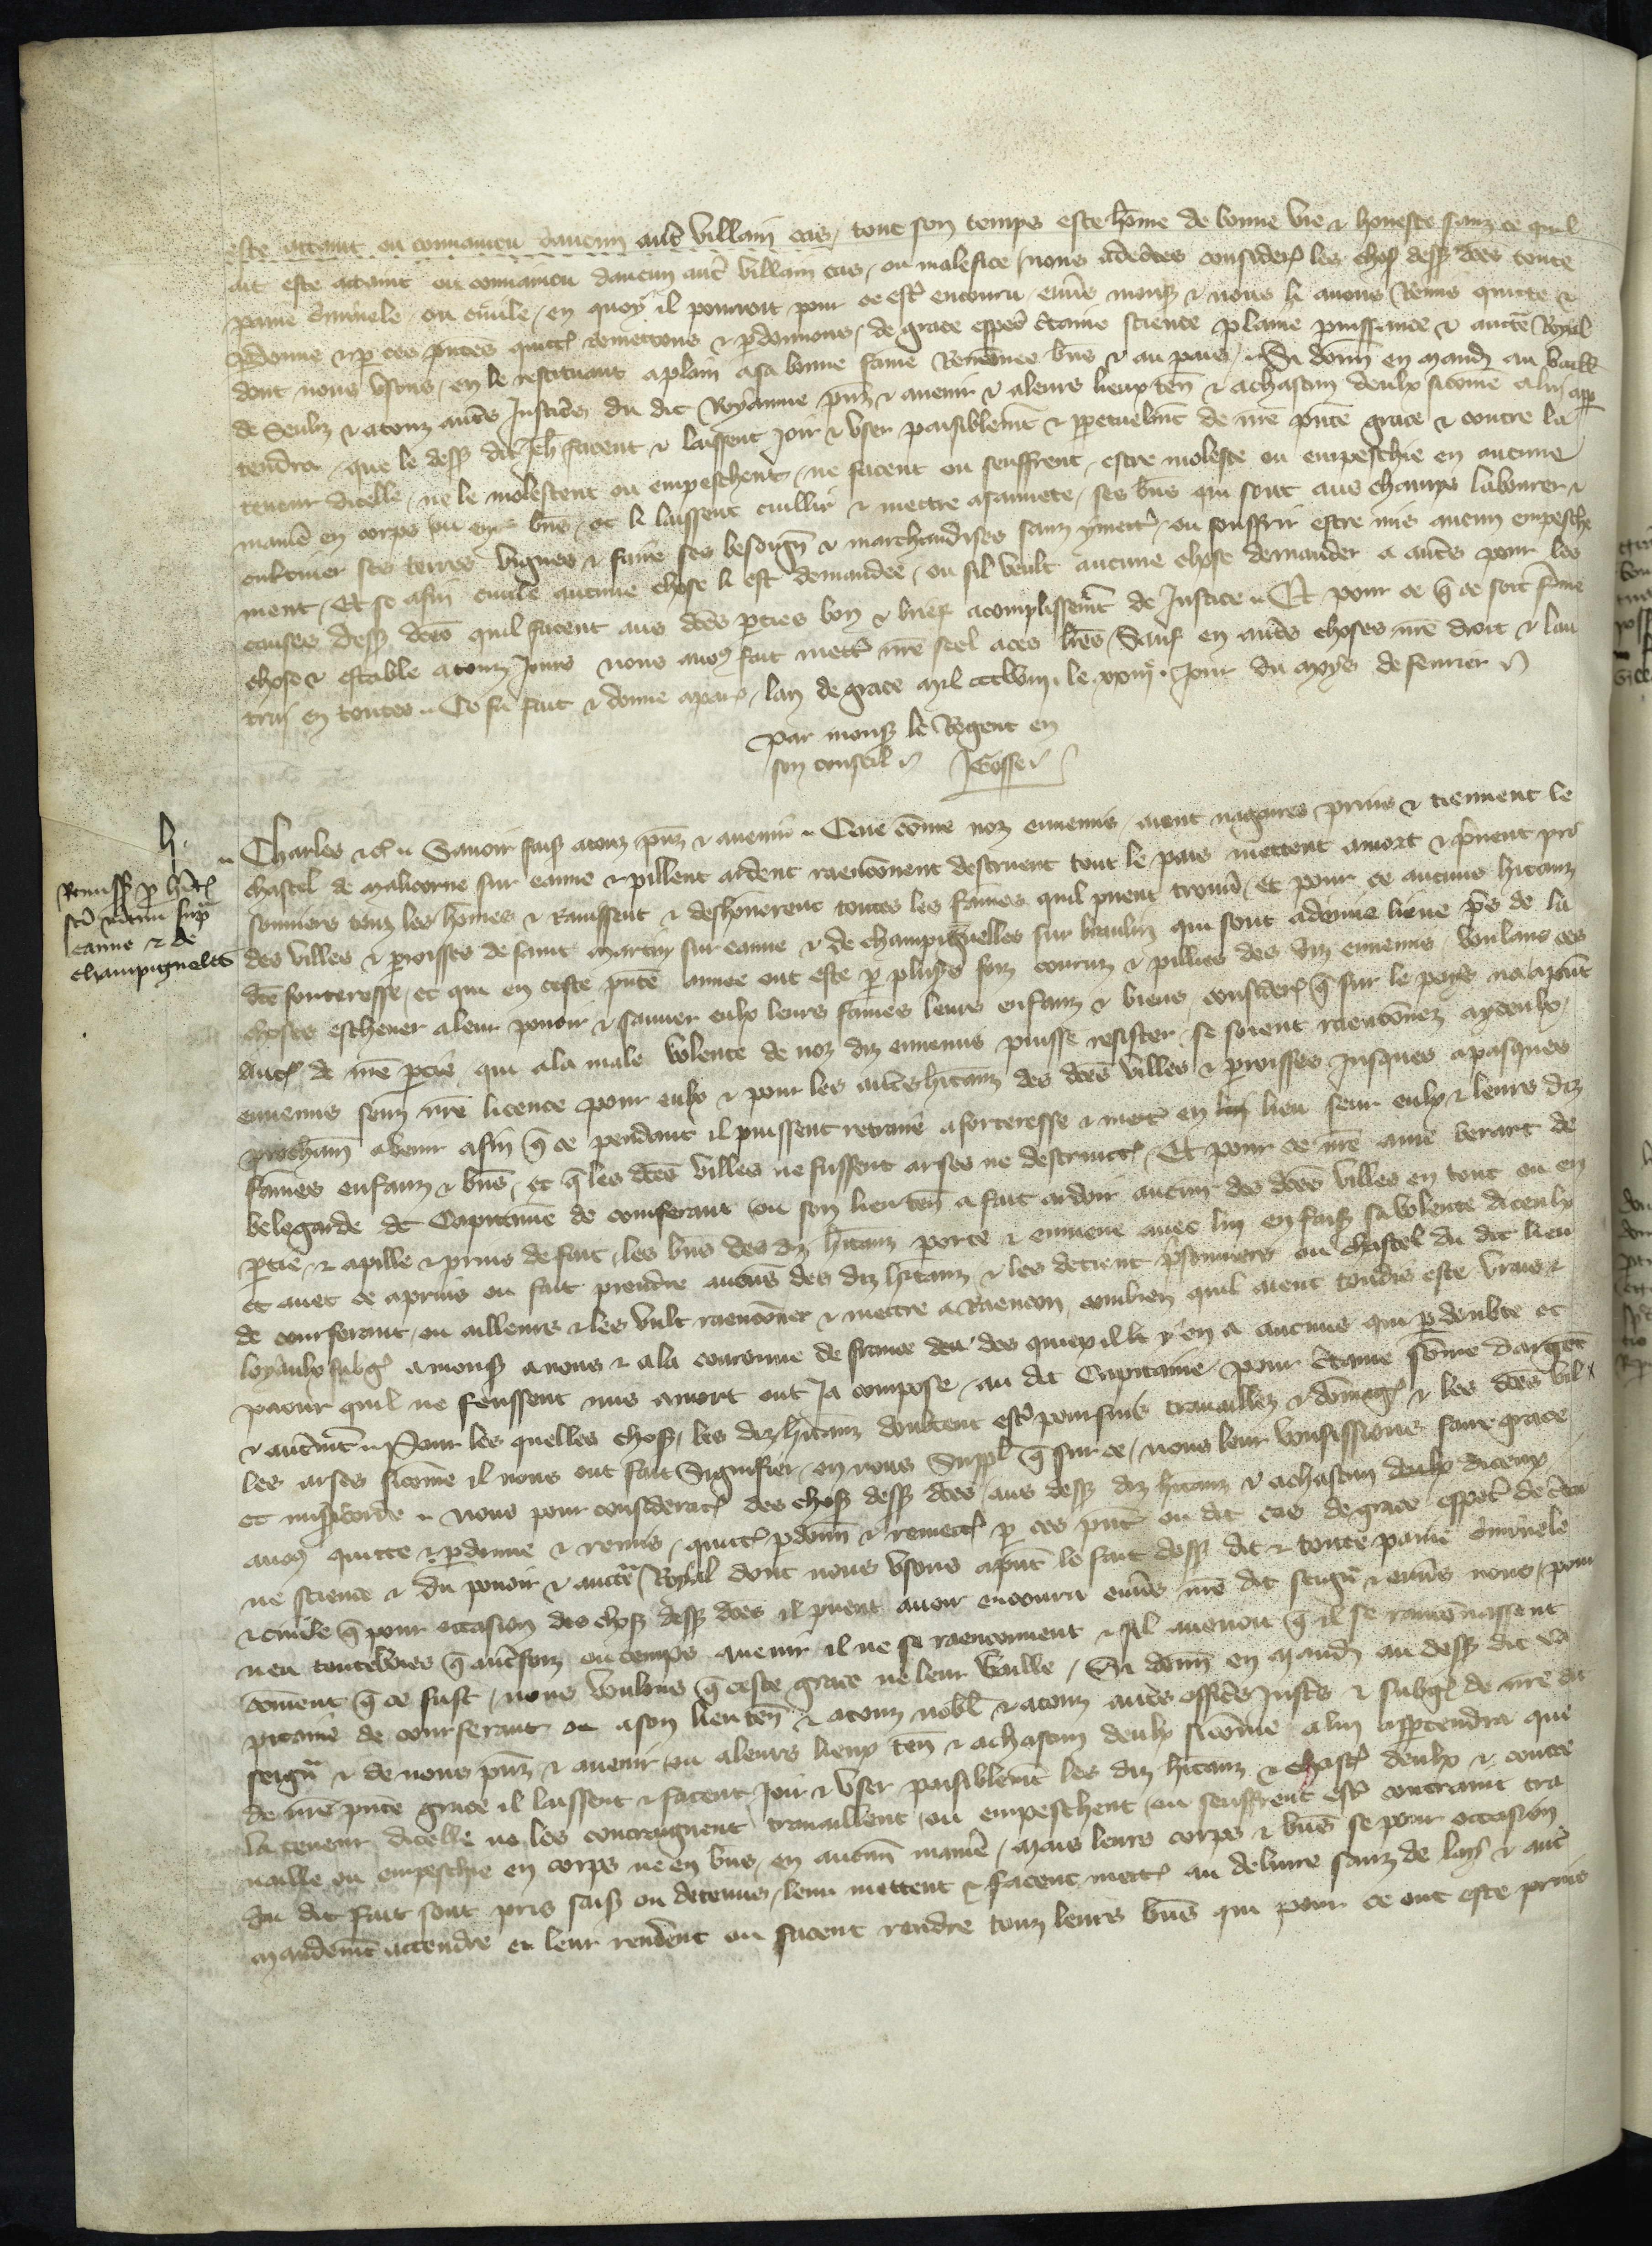 este attaint ou convaincu daucun autre villain cas, tout son temps este home de bonne vie & honeste sanz ce quil
ait este attaint ou convaincu daucun autre villain cas, ou malefice, nous adecertes consideré les choses dessus dictes toute
paine criminele, ou civile, en quoy il pourroit pour ce estre encouru, envers monss & nous li avons Remis quicte &
pdonne & p ces pntes quictons remettons & pdonnons, de grace especial ctaine science plaine puissance & aucte Royal
dont nous usons, en le restituant aplain a sa bonne fame Renomee bns & au pais, Si donn en mand au baill
de Senliz & a touz autres Justiciers du dit Royaume pnz & avenir & aleurs lieux ten & achascun deulx sicome alui appar
tendra, que le dess dit Jeh facent & laissent joir & user paisiblemt & ppetuelmt de nre pnte grace & contre la
teneur dicelle, ne le molestent ou empeschent, ne facent ou seuffrent, estre moleste ou empeschie en aucune
maniere en corps ou en bns, et li laissent cuillir & mettre a sauvete, ses bns qui sont aus champs labourer &
cultiver ses terres vignes & faire ses besoign & marchandises sanz y mettre, ou souffrir estre mis aucun empesche
ment, Et se afin civile aucune chose li est demandee, ou sil veult aucune chose demander a autres pour les
causes dess dces quil facent aus dces pties bon & brief acomplissemt de Justice, Et pour ce q ce soit ferme
chose & estable a touz Jours nous avons fait mettre nre scel a ces lres, Sauf en autres choses nre droit & lau
trui en toutes, Ce fu fait & donne a paris, lan de grace mil ccclviii, le xxiiije Jour du moys de fevrier
Par monss le Regent en
son conseil J Gosse
h.
Remiss p hitat
sci martini supra
eanne & de
champignelles
Charles &c Savoir fais a touz pnz & avenir, Que come noz ennemis, aient nagaires prins & tiennent le
chastel de malicorne sur eanne & pillent ardent raenconent destruent tout le pais mettent a mort & pnent pri
sonniers touz les homes & Ravissent & deshonerent toutes les fames quil puent trouver, Et pour ce aucuns hitanz
des villes & proisses de saint martin sur eanne & de champignelles sur braulin qui sont a demie lieue pres de la
dce forteresse, et qui en ceste pnte annee ont este p plusrs foiz couruz & pilliez des diz ennemis, voulans ces
choses eschever a leur pouoir & sauver eulx leurs fames leurs enfanz & biens, consideré q sur le pays na aucune
de nre ptie, qui a la male volente de noz diz ennemis puisse resister, se soient raenconnez a yceulx
ennemis senz nre licence pour eulx & pour les autres hitanz des dces villes & proisses jusques a pasques
prochain avenir afin q ce pendant il puissent retraire a forteresse & mettre en lieu seur eulx & leurs diz
fames enfanz & bns, et q les dces villes ne fussent arses ne destruites, Et pour ce nre ame berart de
belegarde dit Capitaine de courferaut ou son lieu ten a fait ardoir aucun des dces villes en tout ou en
ptie & a pille & prins de fait, les bns des diz hitanz porte & emmene avec lui en fais sa volente diceulx
et avec ce a prins ou fait prendre aucuns des diz hitanz & les detient prisonniers ou chastel du dit lieu
de courferaut, ou ailleurs & les vult raenconner & mettre a Raencon, combien quil aient touzdis este vrais &
loyaulx subgez a monss a nous & a la couronne de france des quiex il y en a aucuns qui p doubte et
paour quil ne feussent mis a mort ont Ja compose au dit Capitaine, pour ctaine some dargent
& autrement, Pour les quelles choses, les diz hitanz doubtent estre poursuis travaillez & domagez & les dces vil
les arses sicome il nous ont fait Signifier, en nous Suppliant q sur ce, nous leur vousissions faire grace
et misericorde, Nous pour consideration des choses dess dces aus dess diz hitanz & achascun deulx diceux
avons quicte & pdonne & remis, quictons pdonn & remettons p ces pntes ou dit cas de grace especial de ctai
ne science & du pouoir & aucte Royal dont nous usons a present le fait dess dit & toute paine criminele
& civile q pour occasion des choses dess dces il puent avoir encouru envers nre dit seigneur & envers nous, pour
veu toutevoies q autrefoiz ou temps avenir il ne se raenconnent & sil avenoit q il se raenconnassent
coment q ce fust, nous voulons q ceste grace ne leur vaille, Si donn en mand au dess dit ca
pitaine de courferaut ou a son lieu ten & a touz nobles & a touz autres officiers Justiciers & subgez de nre dit
seigneur & de nous pnz & avenir ou a leurs lieux ten & achascun deulx sicome a lui appartendra que
de nre pnte grace il laissent & facent Joir & user paisiblemt les diz hitanz & chascun deulx & contre
la teneur dicelle ne les contraignent travaillent, ou empeschent, ou seuffrent estre contraint tra
vaille ou empeschie en corps ne en bns, en aucune maniere, Mais leurs corps & bns se pour occasion
du dit fait sont pris saisiz ou detenus, leur mettent & facent mettre au delivre sanz delay & autre
mandemt attendre & leur rendent ou facent rendre touz leurs bns qui pour ce ont este prins